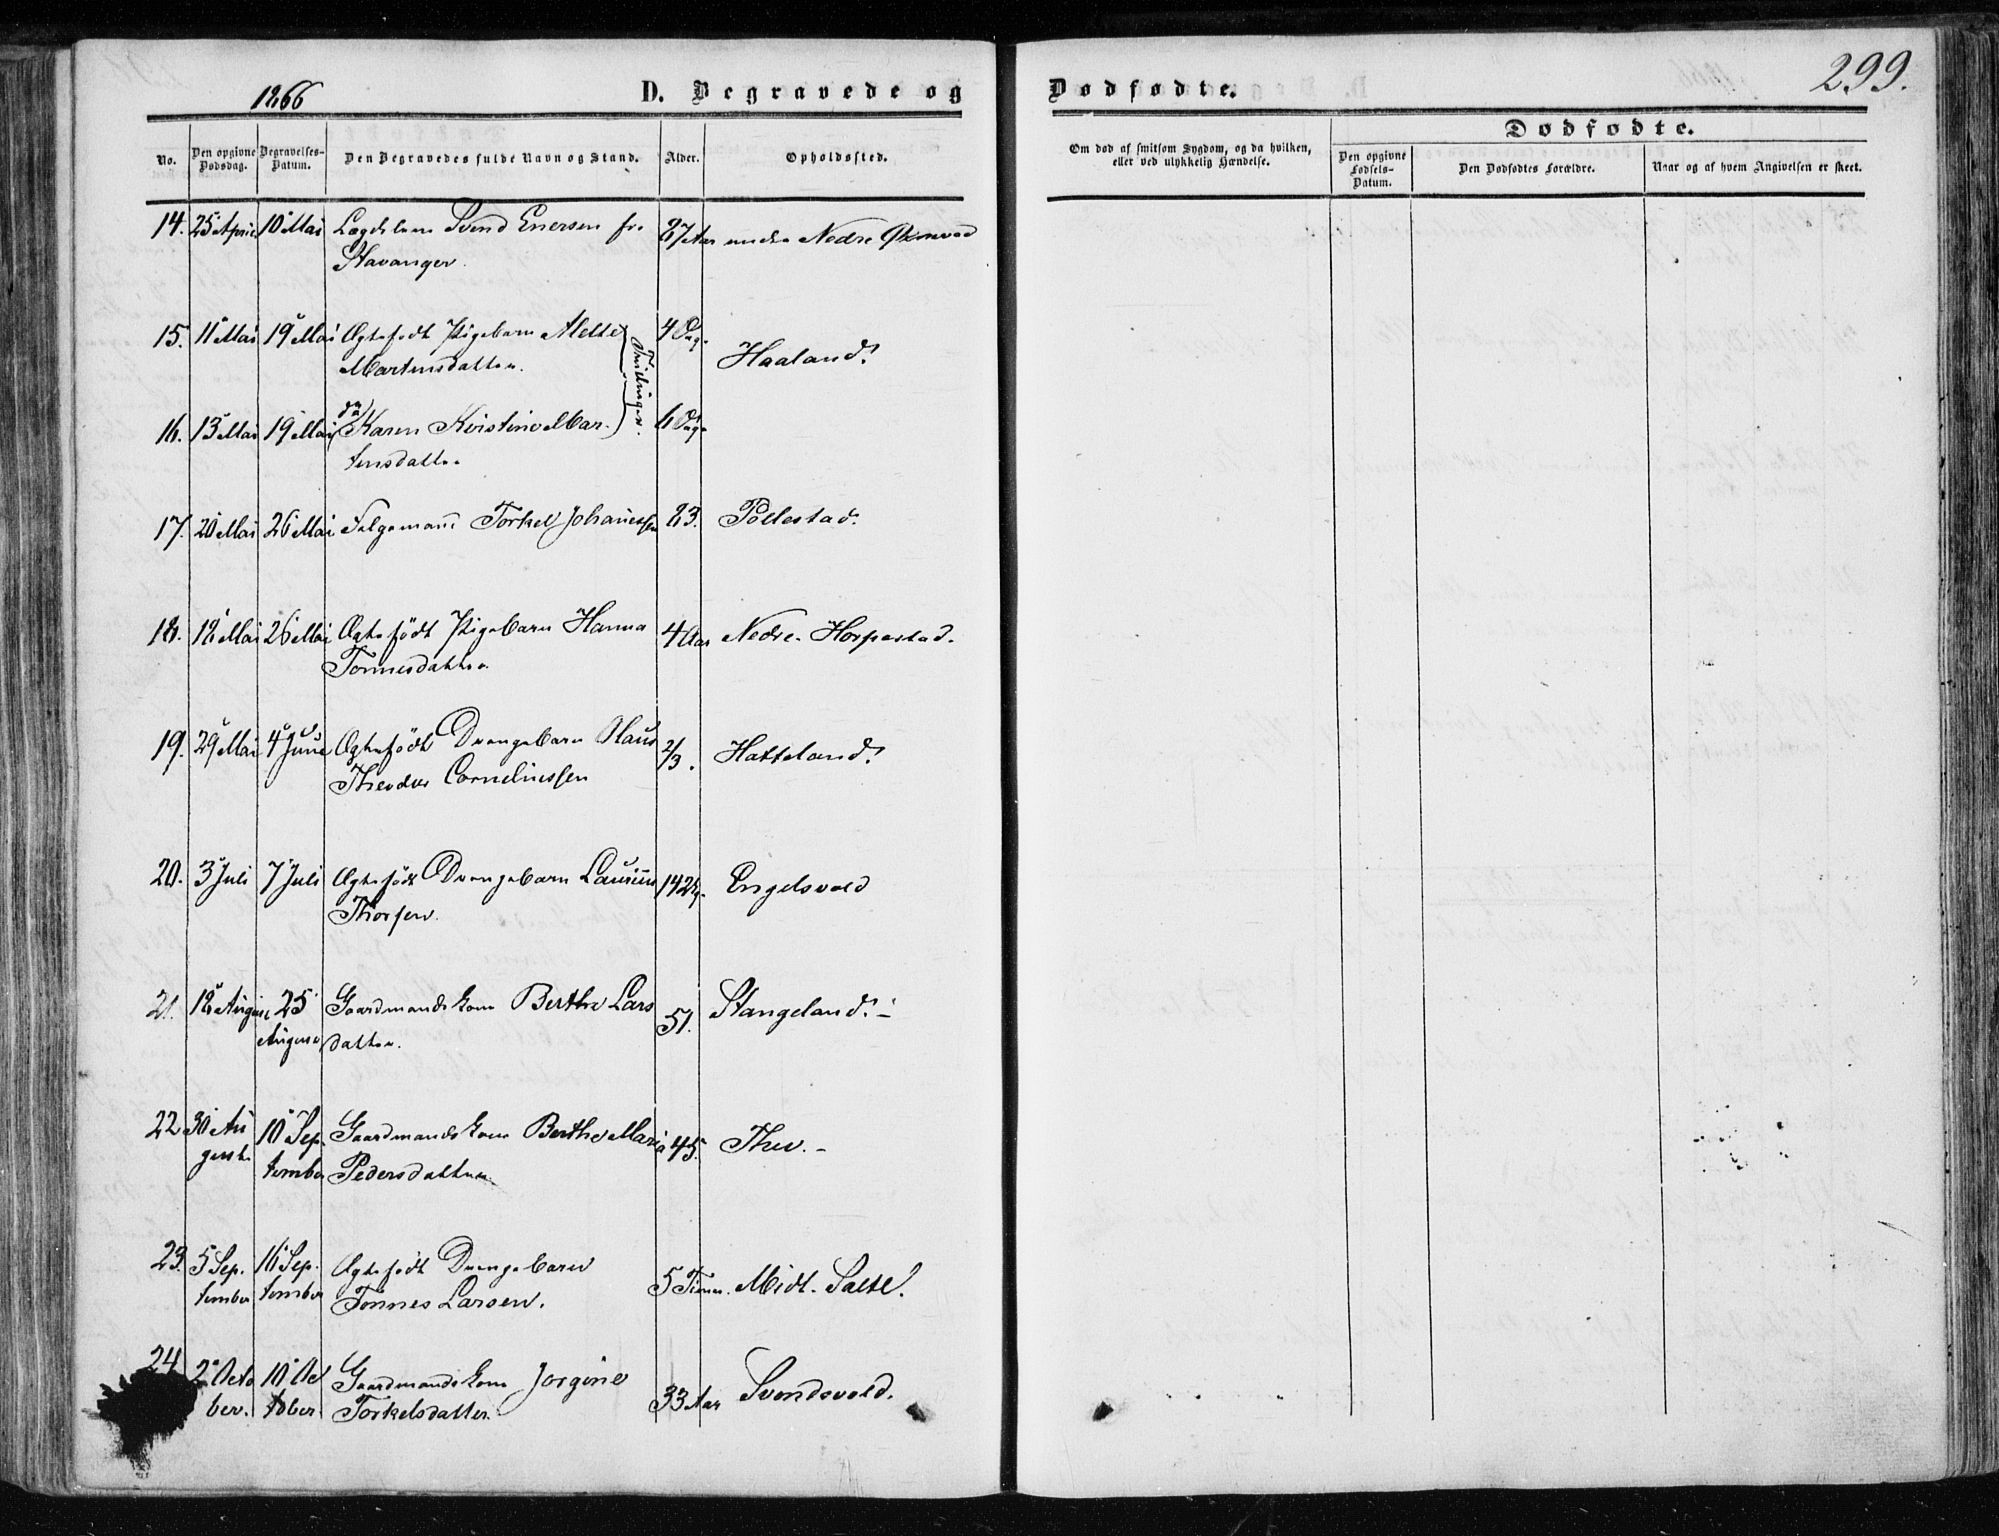 1866
D. Begravede og
Dødfødte.
299.
No.
Den opgivne Dødsdag.
Begravelses-Datum.
Den Begravedes fulde Navn og Stand.
Alder.
Opholdssted.
Om død af smitsom Sygdom, og da hvilken, eller ved ulykkelig Hændelse.
Dødfødte.
Den opgivne Fødsels-Datum.
Den Dødfødtes Forældre.
Naar og af hvem Angivelsen er skeet.
14. 25 April 10 Mai Lægdslem Svend Enersen fra 87 Aar Nedre
Stavanger.
15. 11 Mai 19 Mai Ægtefødt Pigebarn Mette 4 Dag. Haaland.
Martinsdatter.
Tvillinger.
16. 13 Mai 19 Mai do Karen Kristine Mar- 6 Dage
tinsdatter
17. 20 Mai 26 Mai Følgemand Torkel Johanessen 83. Pollestad.
18. 18 Mai 26 Mai Ægtefødt Pigebarn Hanna 4 Aar Nedre Horpestad.
Tonnesdatter
19. 29 Mai 4 Juni Ægtefødt Drengebarn Olaus 2/3. Hatteland.
Theodor Corneliussen
20. 3 Juli 7 Juli Ægtefødt Drengebarn Laurius 14 Dg. Engelsvold
Thorsen.
21. 18 August 25 Gaardmandskone Berthe Lars 51. Stangeland.
August datter.
22 30 Au 10 Sep Gaardmandskone Berthe Maria 45. Thu.
gust tember Pedersdatter
23. 5 Sep. 16 Sep. Ægtefødt Drengebarn 5 Timer. Midt. Salte.
tember tember Tönnes Larsen.
24 2 Octo 10 Oc Gaardmandskone Jorgine 33 Aar Svendsvold.
ber. tober Torkelsdatter